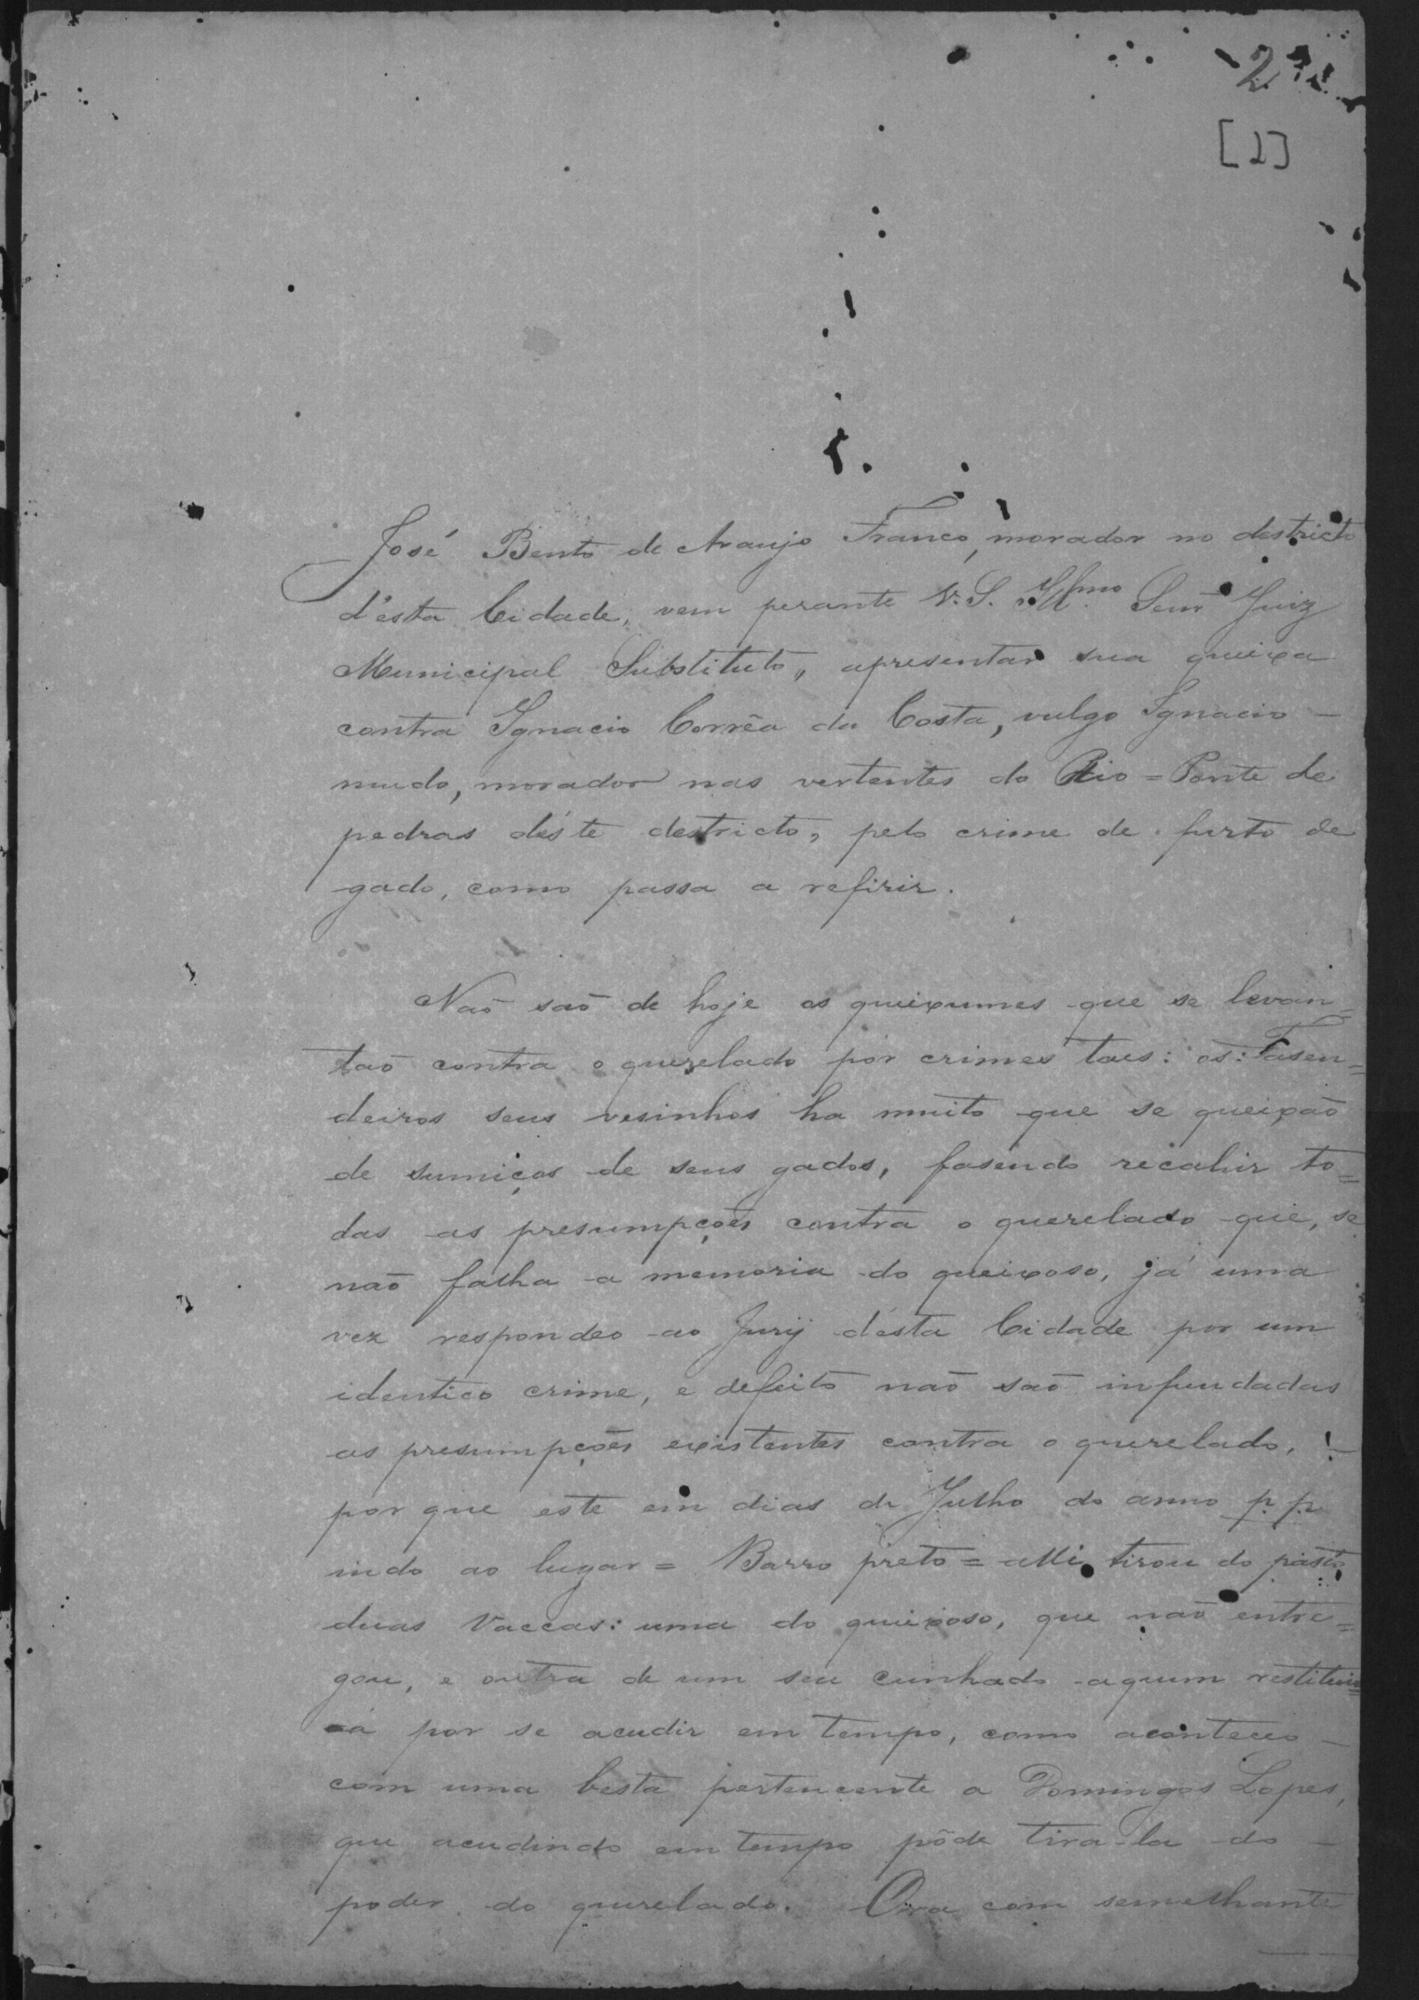 2
[2]
José Bento de Araujo Franco, morador no destricto
d'ésta Cidade, vem perante V. S. Illmo Senr Juiz
Municipal Substituto, apresentar sua queixa
contra Ignacio Corrêa da Costa, vulgo Ignacio –
mudo, morador nas vertentes do Rio = Ponte de
pedras déste destricto, pelo crime de furto de
gado, como passa a refirir.
Naõ saõ de hoje os queixumes que se levan=
taõ contra o querelado por crimes taes: os: Fasen=
deiros seus vesinhos ha muito que se queixaõ
de sumiços de seus gados, fasendo recahir to=
das as presumpções contra o querelado que, se
naõ falha a memoria do queixoso, já uma
vez respondeo ao Jury désta Cidade por um
identico crime, e defeito naõ saõ infundadas
as presumpções existentes contra o querelado, –
por que este em dias de Julho do anno p. p.
indo ao lugar = Barro preto = alli tirou do pasto
duas Vaccas: uma do queixoso, que naõ entre=
gou, e outra de um seu cunhado aquem restituio=
a por se acudir em tempo, como aconteceo –
com uma besta pertencente a Domingos Lopes,
que acudindo em tempo pôde tira-la do –
poder do querelado. Ora com semelhante